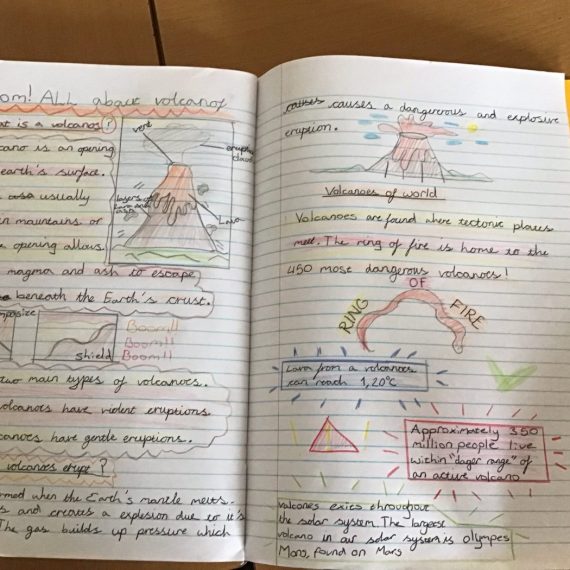 om! ALL about volcanos
at is a volcanos?
cano is an opening
earth's surface.
usually
in mountains or
e opening allows
magma and ash to escape
beneath the Earth's crust.
vent
eruption
cloud
layers of
lava and
ash
Lava
mposite
shield
Boom!!
Boom!!
Boom!!
two main types of volcanoes.
olcanoes have violent eruptions
canoes have gentle eruptions.
volcanoes erupt?
rmed when the Earth's mantle melts.
s and creats a explosion due to it's
The gas builds up pressure which
causes causes a dangerous and explosive
eruption.
Volcanoes of world
Volcanoes are found where tectonic plates
meet. The ring of fire is home to the
450 most dangerous volcanoes!
RING OF FIRE
Lava from a volcanoes
can reach 1,20°C
Approximately 350
million people live
within "dager range" of
an active volcano
Valcanoes exies throughout
the solar system. The largest
volcano in air solar system is olympes
Mons, found on Mars